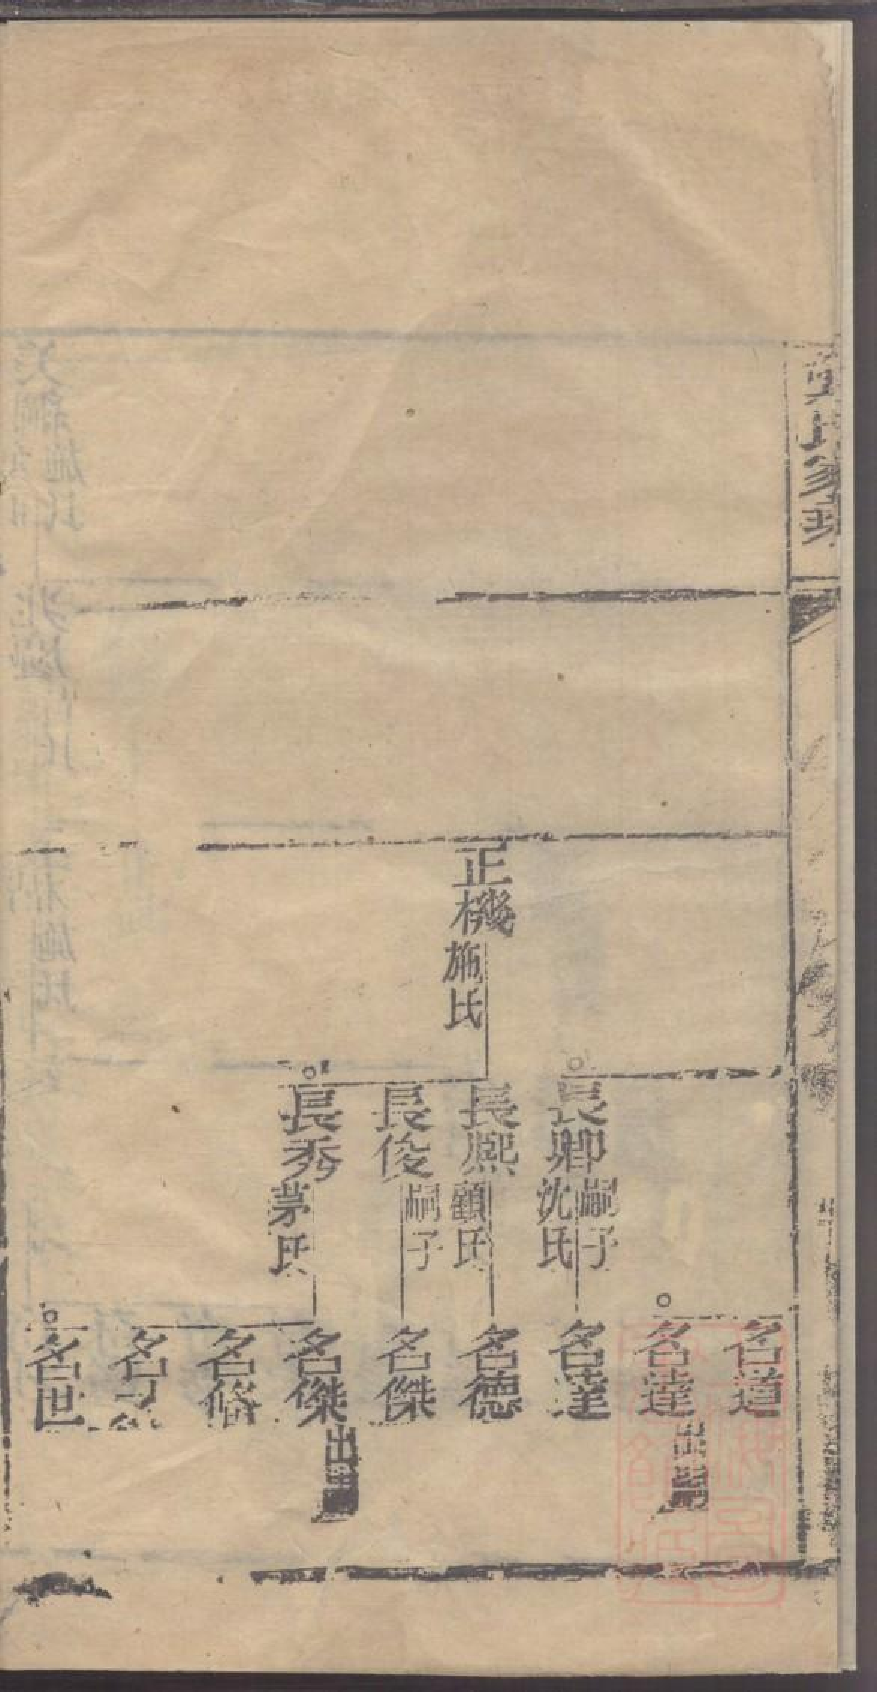 正機施氏
長卿沈氏嗣子
長熙顧氏
長俊嗣子
長秀茅氏
名道
名達出嗣
名達
名德
名傑
名傑出嗣
名脩
名
名世